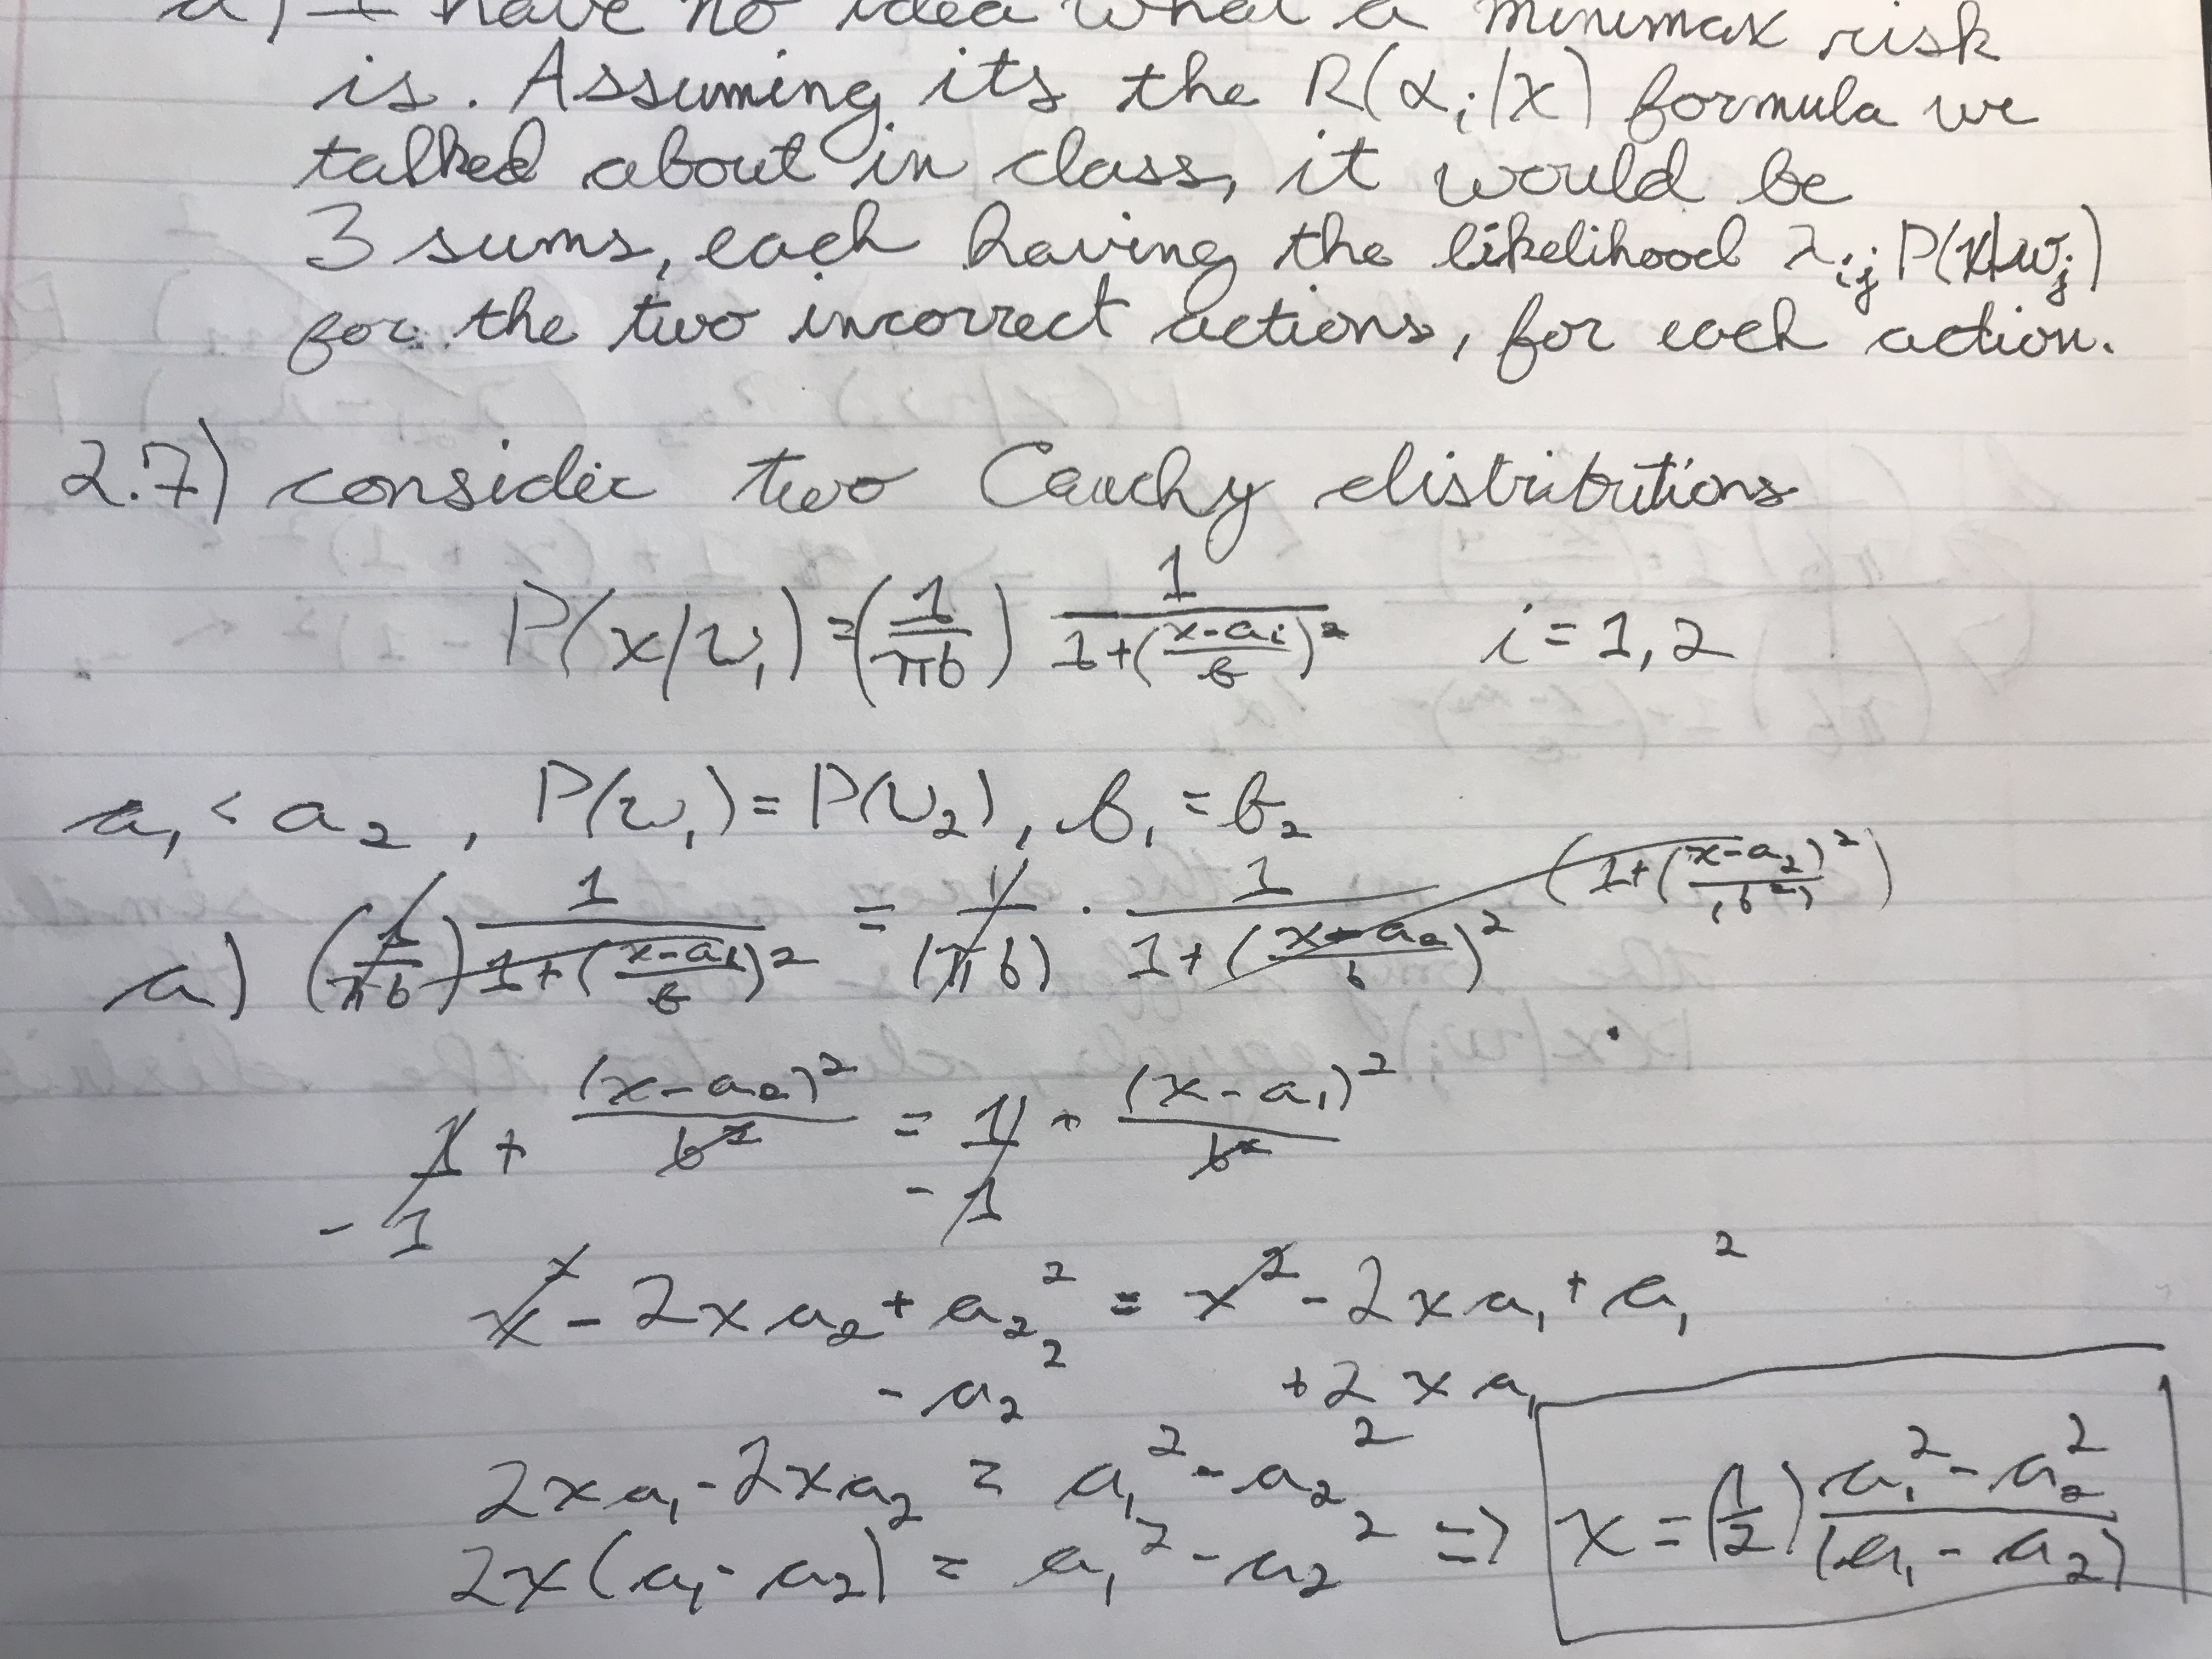 d) I have no idea what a minimax risk
is. Assuming its the R(αᵢ|x) formula we
talked about in class, it would be
3 sums, each having the likelihood λᵢⱼ P(x|wⱼ)
for the two incorrect actions, for each action.
2.7) consider two Cauchy distributions
P(x|wᵢ) = (1/πb) 1/(1+((x-aᵢ)/b)²) i = 1,2
a₁ < a₂, P(w₁) = P(w₂), b₁ = b₂
a) (1/πb) 1/(1+((x-a₁)/b)²) = (1/πb) · 1/(1+((x-a₂)/b)²) (1+((x-a₂)/b)²)
1 + (x-a₂)²/b² = 1 + (x-a₁)²/b²
-1 -1
x² - 2xa₂ + a₂² = x² - 2xa₁ + a₁²
- a₂² +2xa₁
2xa₁ - 2xa₂ = a₁² - a₂²
2x(a₁ - a₂) = a₁² - a₂² => x = (1/2) (a₁² - a₂²)/(a₁ - a₂)